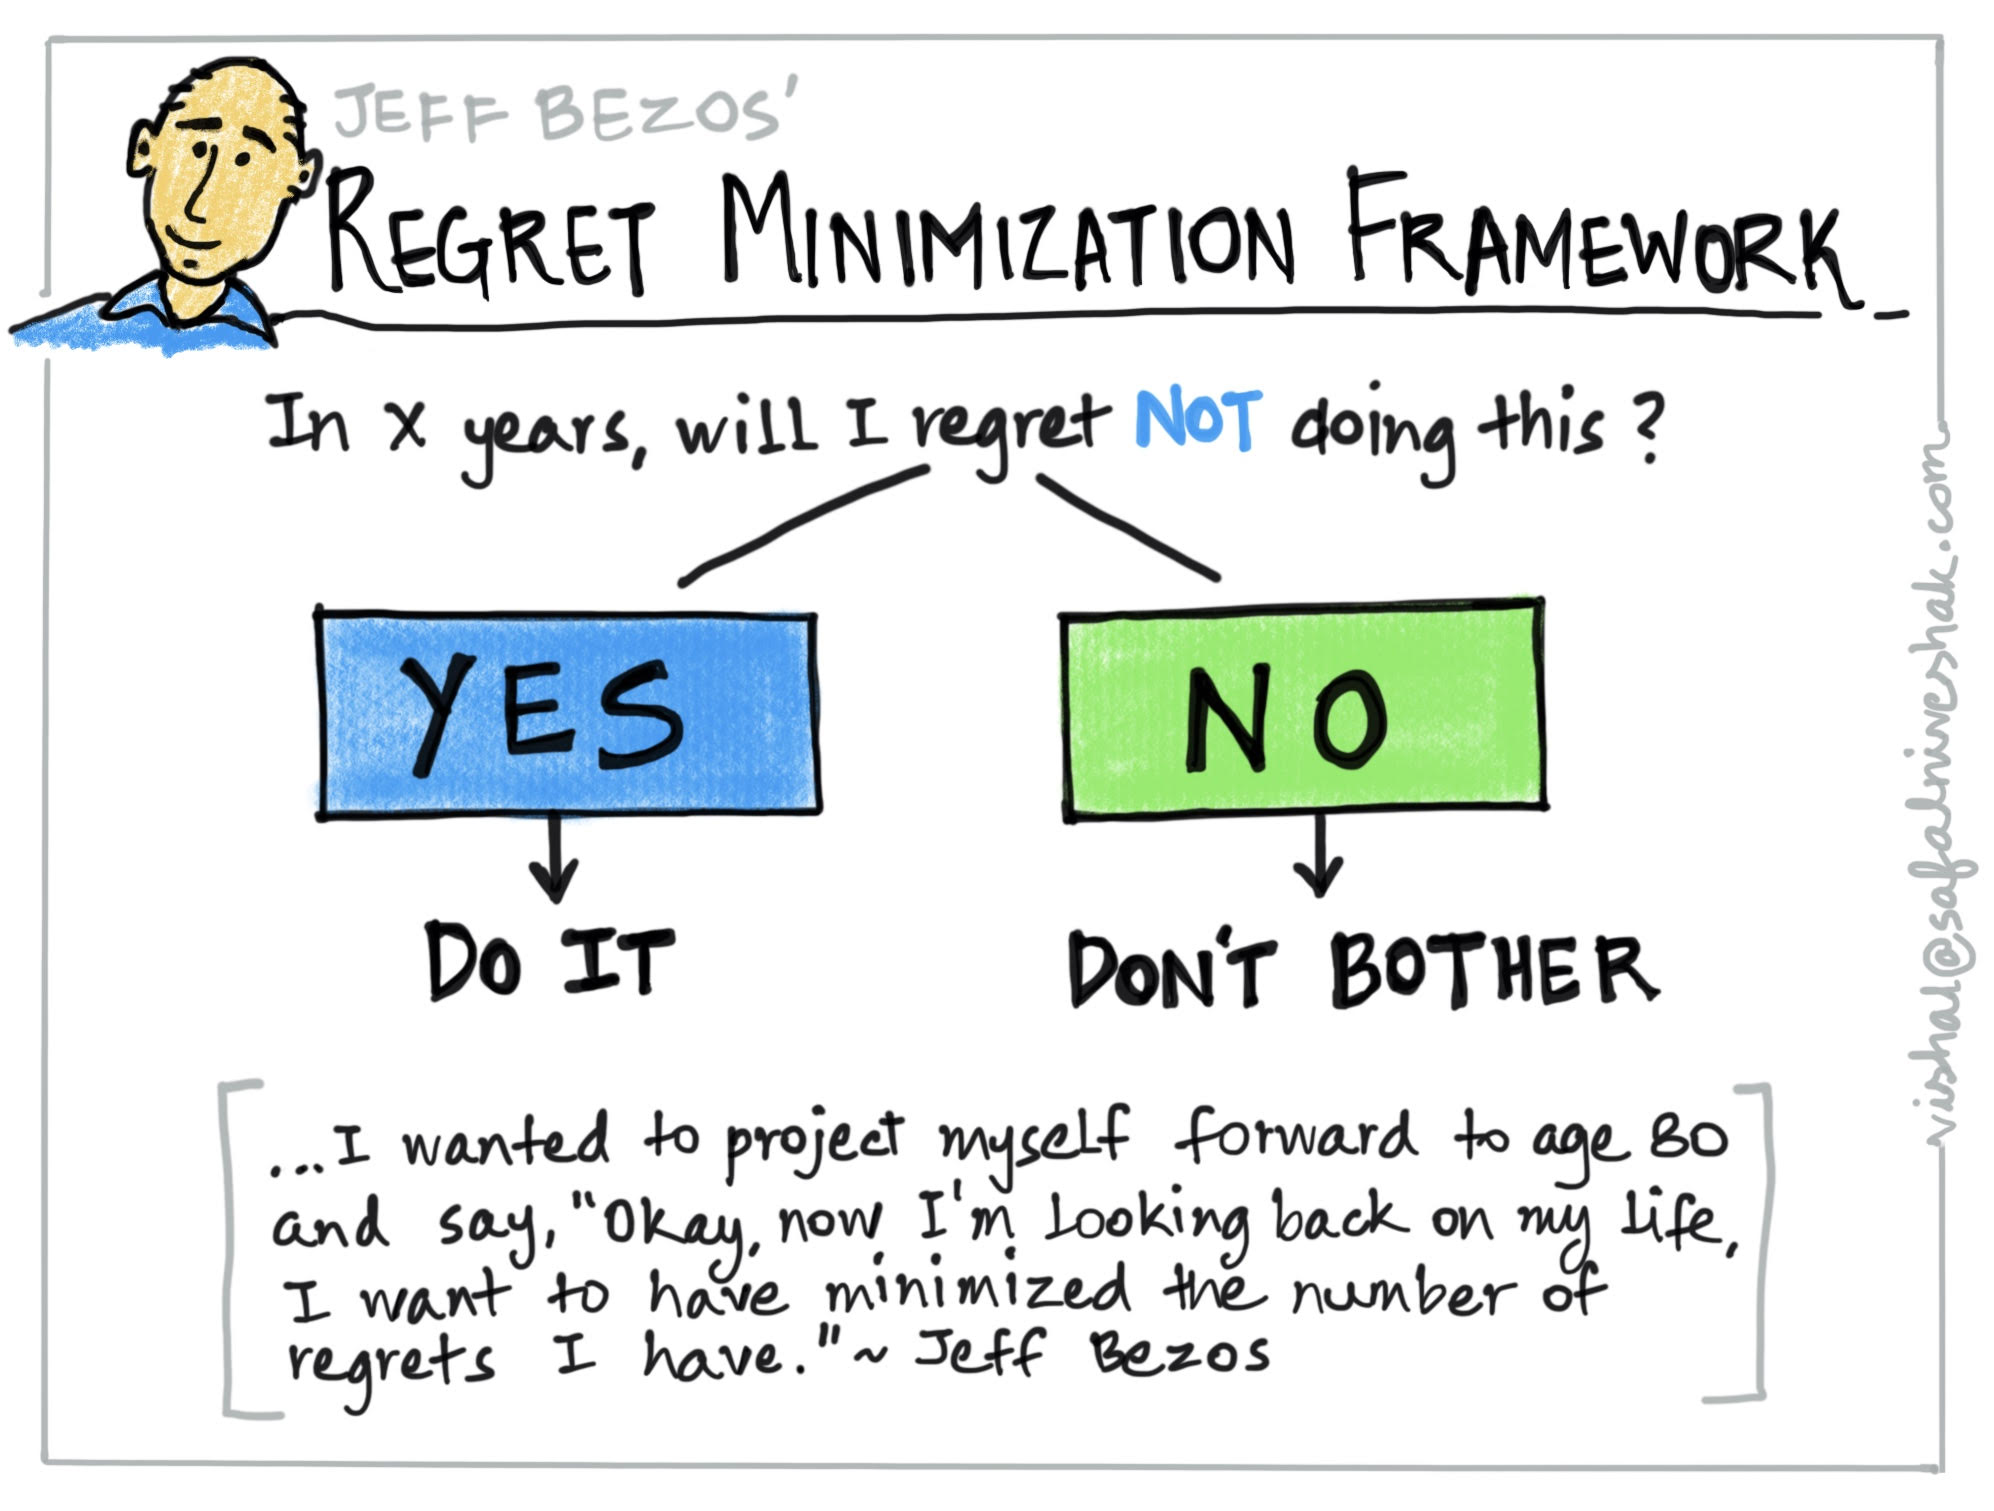 JEFF BEZOS'
REGRET MINIMIZATION FRAMEWORK
In X years, will I regret NOT doing this?
YES
NO
DO IT
DON'T BOTHER
...I wanted to project myself forward to age 80
and say, "Okay, now I'm looking back on my life,
I want to have minimized the number of
regrets I have."~ Jeff Bezos
vishal@safalniveshak.com